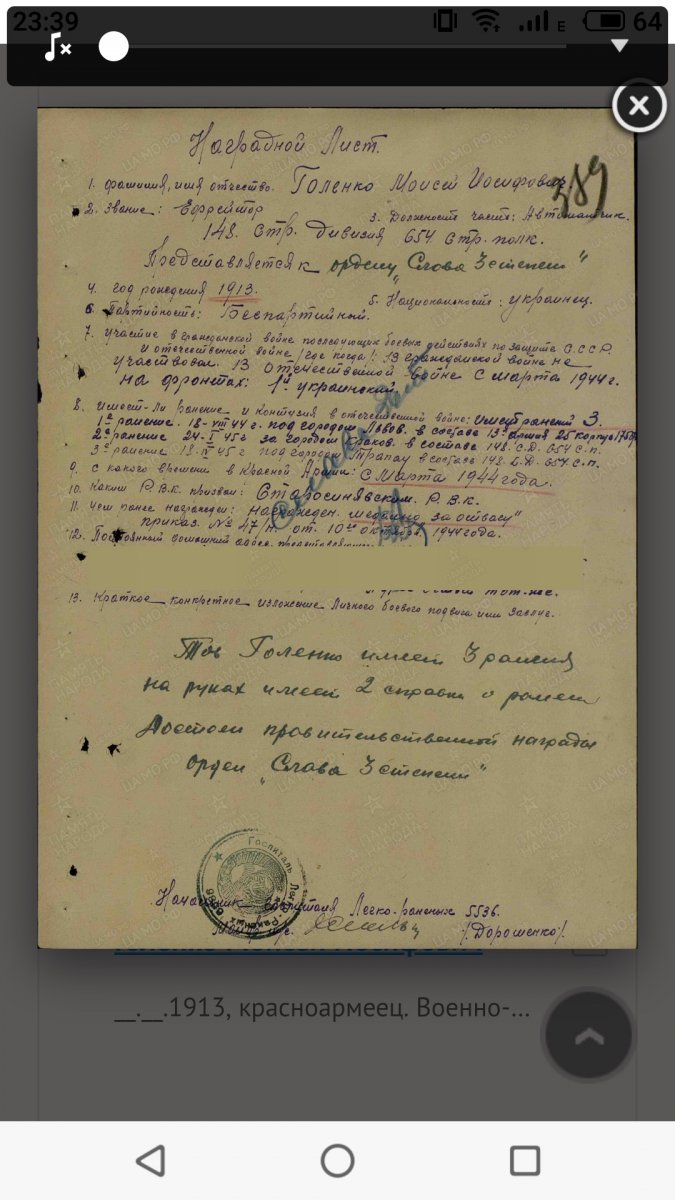 23:39
E
64
Наградной Лист.
389
1. Фамилия, имя отчество. Голенко Моисей Иосифович.
2. Звание: Ефрейтор
3. Должность часть: Автоматчик.
148. Стр. дивизия 654 стр. полк.
Представляется к ордену „Слава 3 степени"
4. год рождения 1913.
5. Национальность: украинец.
6. Партийность: Беспартийный.
7. участие в гражданской войне последующих боевых действиях по защите С.С.С.Р.
и отечественной войне /где когда/: В гражданской войне не
участвовал. В Отечественной войне с марта 1944 г.
на фронтах: 1й украинский.
8. имеет-ли ранение и контузия в отечественной войне: имеет ранений 3.
1е ранение. 18-VIII 44 г. под городом Львов. в составе 13я армия 25 корпус
2е ранение 24-I 45 г за городом Краков. в составе 148. С.Д. 654 с.п.
3е ранение 18-IV 45 г под городом Трапау в составе 148 С.Д. 654 с.п.
9. с какого времени в Красной Армии: с марта 1944 года.
10. Каким Р.В.К. призван: Старосинявским. Р.В.К.
11. Чем ранее награжден: награжден. медалью „за отвагу"
приказ. № 47/н. от. 10го октября 1944 года.
12. Постоянный домашний адрес
13. Краткое конкретное изложение Личного боевого подвига или Заслуг.
Тов Голенко имеет 3 ранения
на руках имеет 2 справки о ранен
Достоин правительственной награды
орден „Слава 3 степени"
Госпиталь Легко-Раненых
Начальник госпиталя Легко-раненых 5536.
/Дорошенко/.
ЦАМО.РФ
__.__.1913, красноармеец. Военно-...